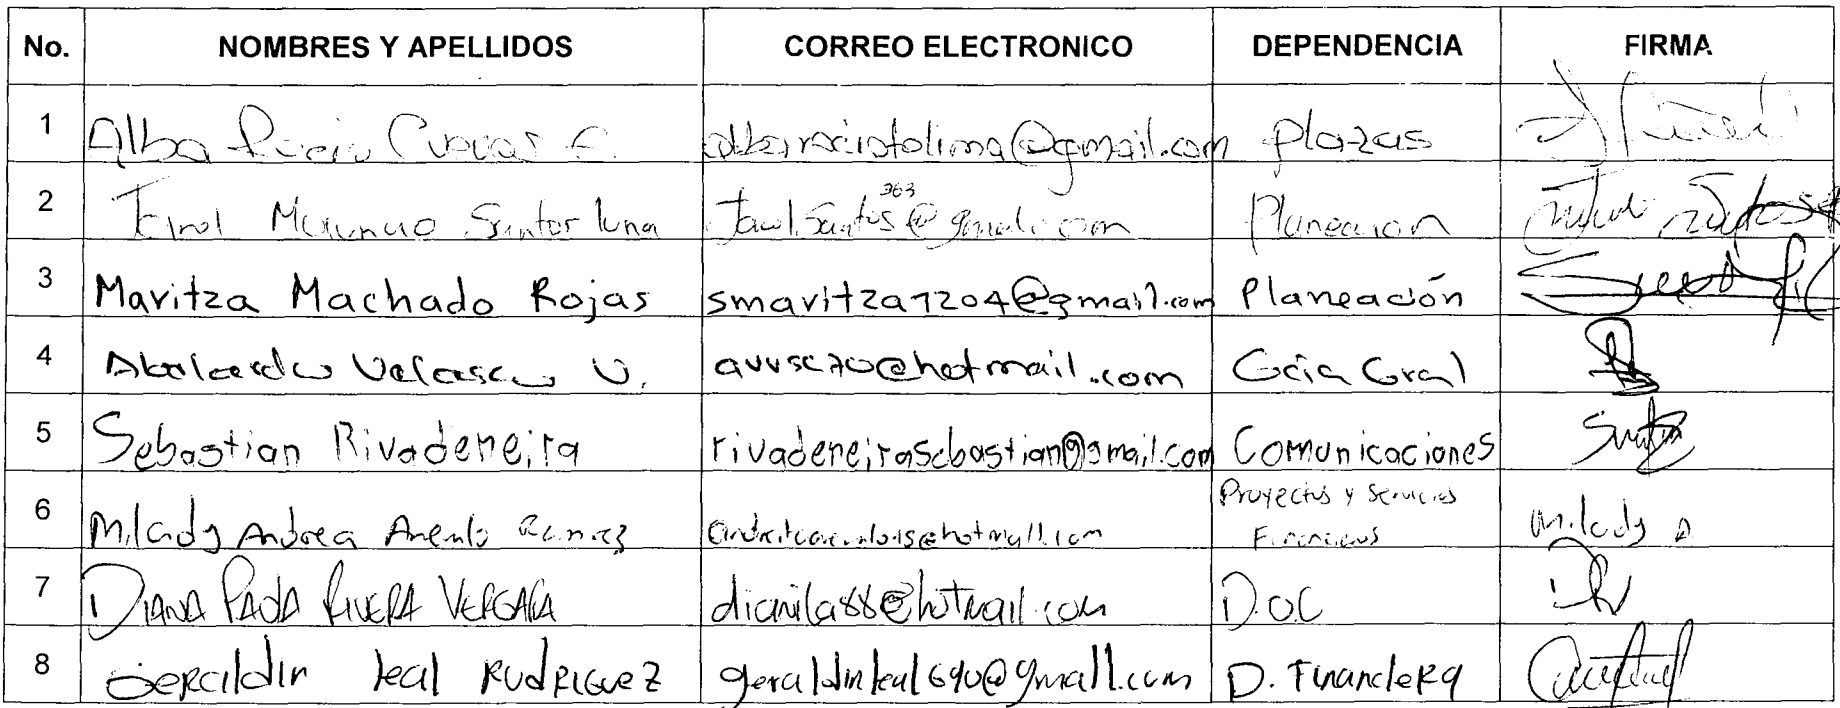 No. NOMBRES Y APELLIDOS CORREO ELECTRONICO DEPENDENCIA FIRMA
1 Alba Rocio Cuevas albarociotolima@gmail.com Plazas
363
2 Santos Luna Planeación
3 Maritza Machado Rojas smaritza1204@gmail.com Planeación
4 Abelardo Velasco V. avvsc70@hotmail.com Gcia Gral
5 Sebastian Rivadeneira rivadeneirasebastian@gmail.com Comunicaciones
Proyectos y Servicios
6 Milady Andrea Ramirez Milady A
Financieros
7 DIANA PAOLA RIVERA VERGARA dianila88@hotmail.com D.O.C
8 Geraldin Leal RODRIGUEZ geraldinleal690@gmail.com D. Financiera